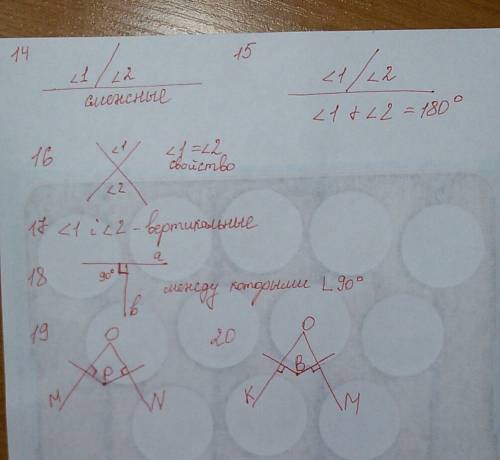 14
∠1 / ∠2
смежные
15
∠1 / ∠2
∠1 + ∠2 = 180°
16
∠1
∠2
∠1 = ∠2
свойство
17 ∠1 i ∠2 - вертикальные
18
a
90°
b
между которыми ∟90°
19
O
P
M
N
20
O
B
K
M